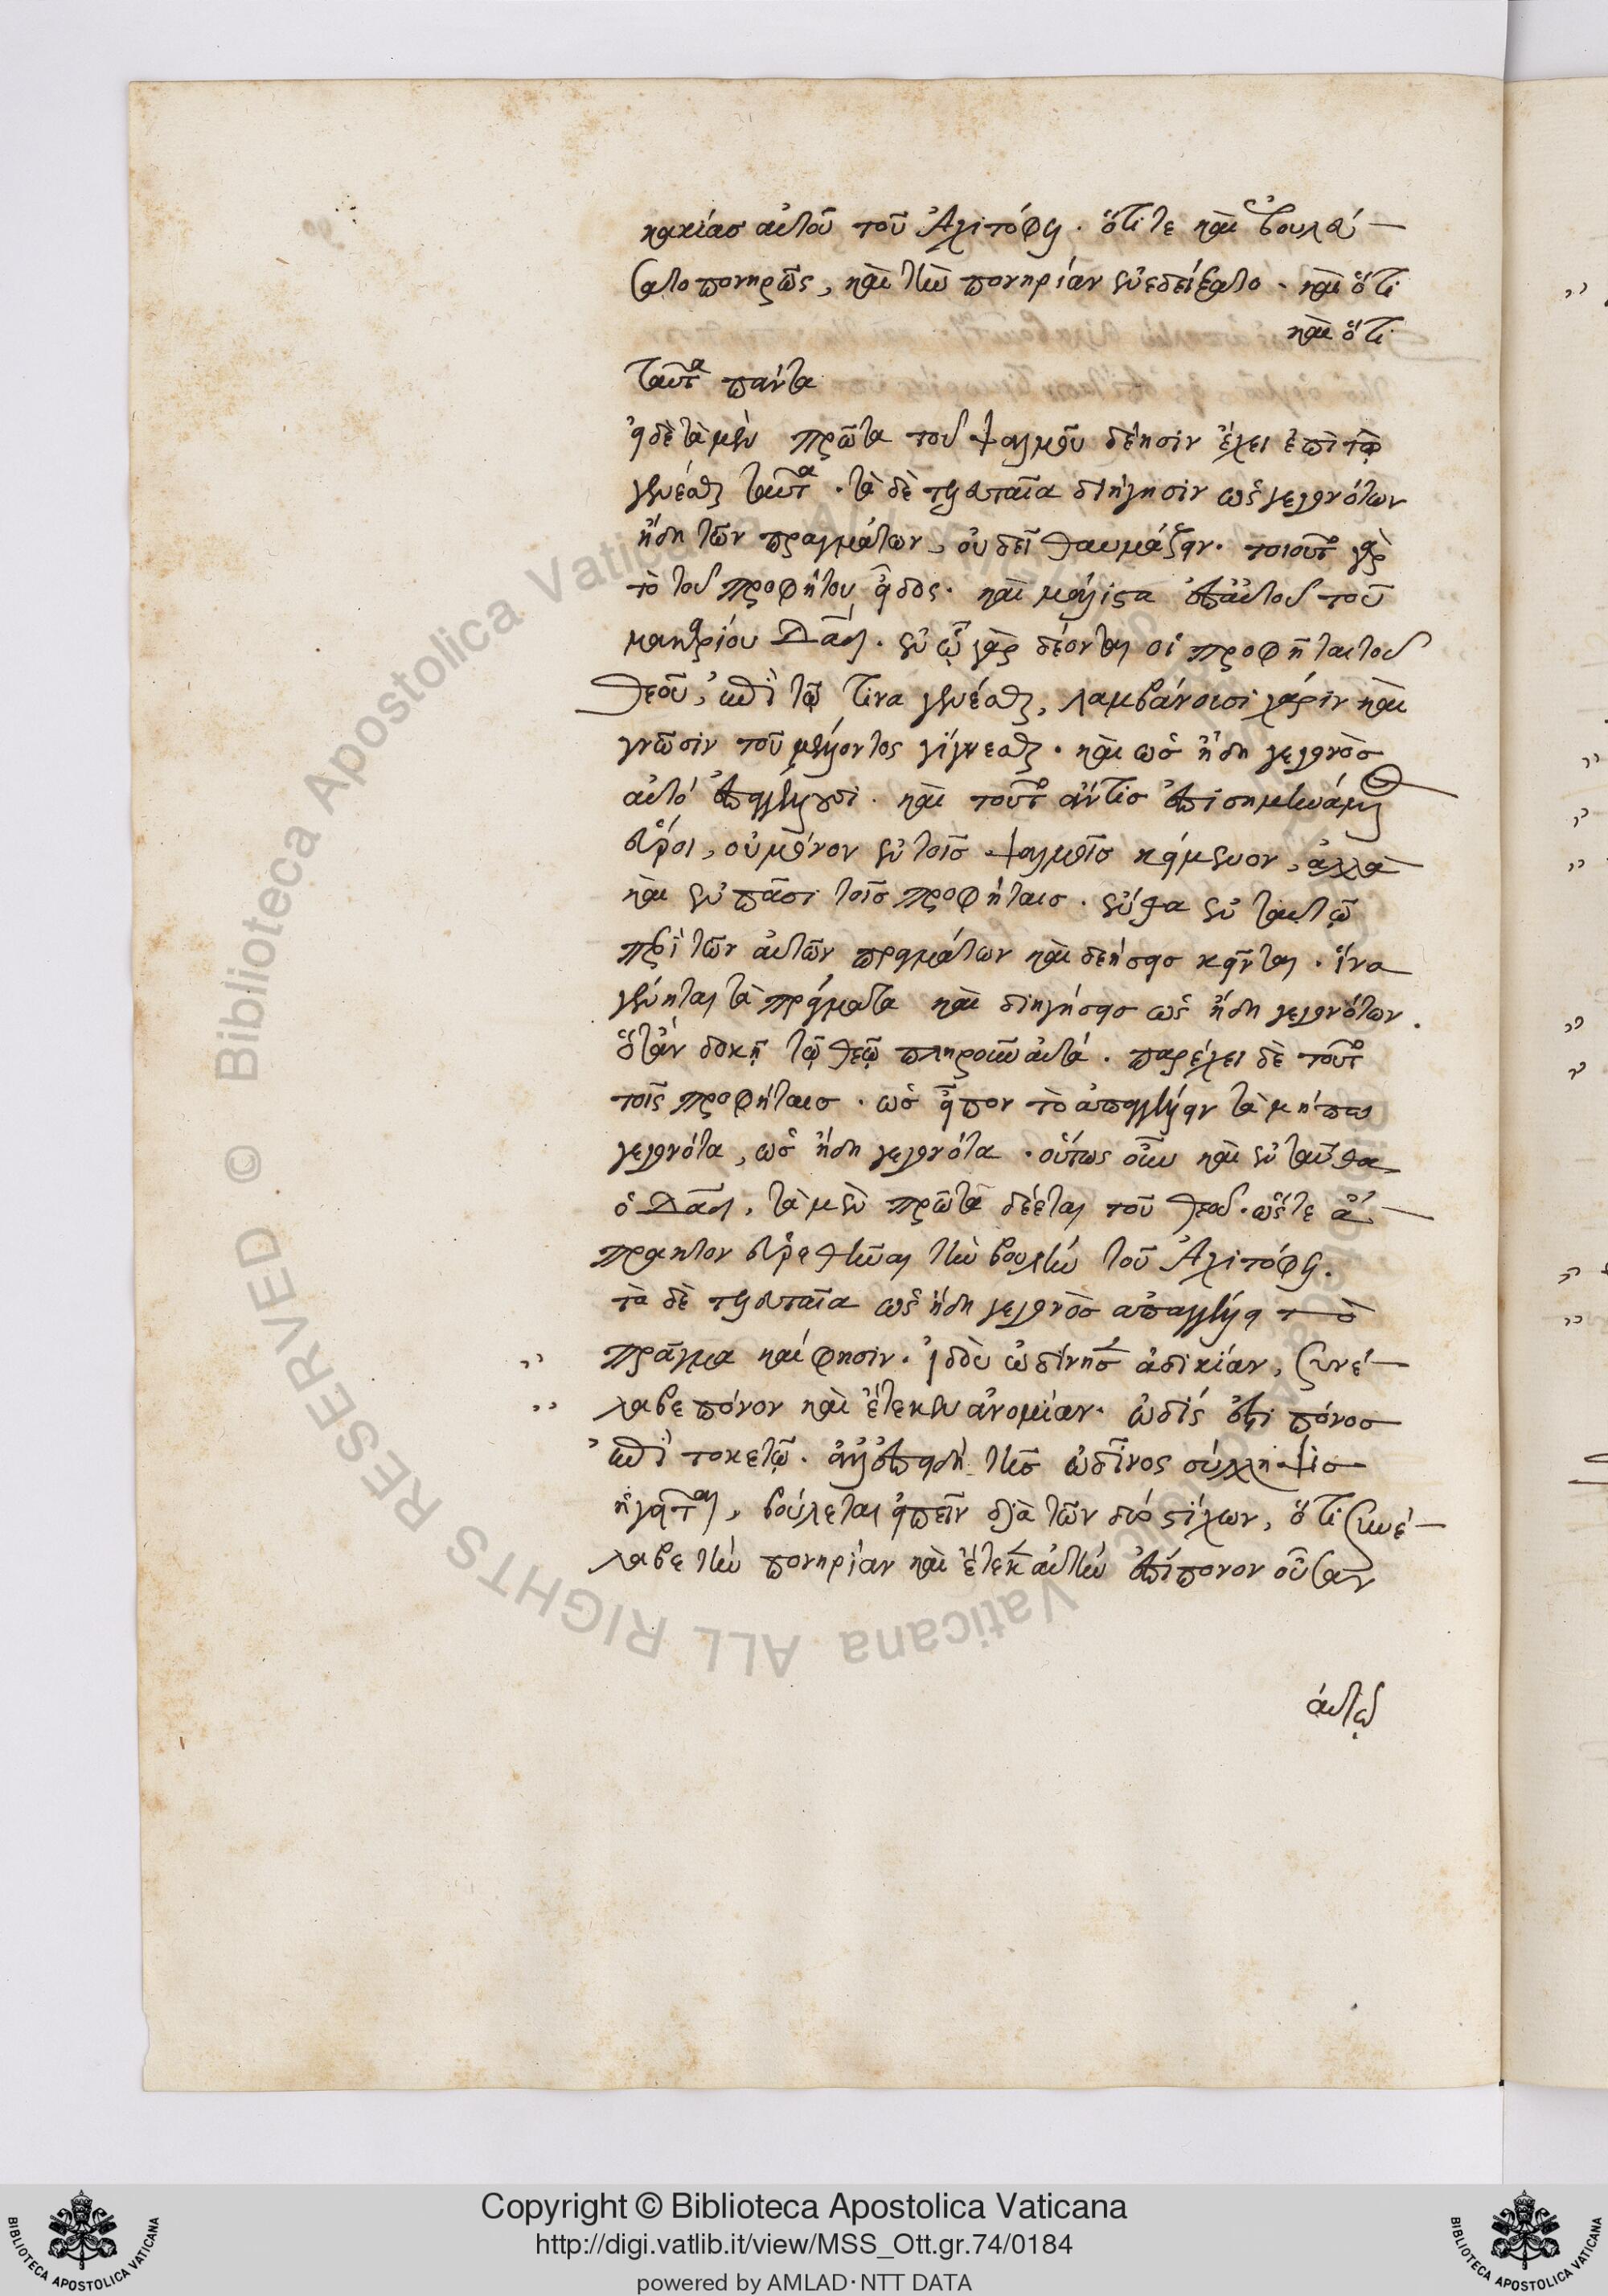 κακίας αὐτοῦ τοῦ Ἀχιτόφελ. ὅτι τε καὶ ἐβουλεύ-
σατο πονηρῶς, καὶ τὴν πονηρίαν ἐνεδείξατο. καὶ ὅτι
καὶ ὅτι
ταῦτα πάντα
εἰ δὲ τὰ μὲν πρῶτα τοῦ ψαλμοῦ δέησιν ἔχει ἐπὶ τῷ
γενέσθαι ταῦτα. τὰ δὲ τελευταῖα διήγησιν ὡς γεγονότων
ἤδη τῶν πραγμάτων, οὐ δεῖ θαυμάζειν. τοιοῦτο γὰρ
τὸ τοῦ προφήτου εἶδος. καὶ μάλιστα ἐπ' αὐτοῦ τοῦ
μακαρίου Δαδ. ἐν ᾧ γὰρ δέονται οἱ προφῆται τοῦ
θεοῦ, ἐπὶ τῷ τινα γενέσθαι, λαμβάνουσι χάριν καὶ
γνῶσιν τοῦ μέλλοντος γίγνεσθαι. καὶ ὡς ἤδη γεγονὸς
αὐτὸ ἀπαγγέλλουσι. καὶ τοῦτο ἄν τις ἐπισημηνάμενος
εὕροι, οὐ μόνον ἐν τοῖς ψαλμοῖς κείμενον, ἀλλὰ
καὶ ἐν πᾶσι τοῖς προφήταις. ἔνθα ἐν ταυτῷ
περὶ τῶν αὐτῶν πραγμάτων καὶ δεήσεις κεῖνται. ἵνα
γένηται τὰ πράγματα καὶ διηγήσεις ὡς ἤδη γεγονότων.
ὅταν δοκῇ τῷ θεῷ πληροῦν αὐτά. παρέχει δὲ τοῦτο
τοῖς προφήταις. ὡς εἶπον τὸ ἀπαγγέλλειν τὰ μήπω
γεγονότα, ὡς ἤδη γεγονότα. οὕτως οὖν καὶ ἐνταῦθα
ὁ Δαδ, τὰ μὲν πρῶτα δέεται τοῦ θεοῦ. ὥστε ἄ-
πρακτον εὑρεθῆναι τὴν βουλὴν τοῦ Ἀχιτόφελ.
τὰ δὲ τελευταῖα ὡς ἤδη γεγονὸς ἀπαγγέλλει τὸ
πρᾶγμα καί φησιν. ἰδοὺ ὠδίνησεν ἀδικίαν, συνέ-
λαβε πόνον καὶ ἔτεκεν ἀνομίαν. ὠδίς ἐστι πόνος
ἐπὶ τοκετῷ. ἀλλ' ἐπειδὴ τῆς ὠδῖνος σύλληψις
ἡγεῖται, βούλεται εἰπεῖν διὰ τῶν δύο στίχων, ὅτι συνέ-
λαβε τὴν πονηρίαν καὶ ἔτεκεν αὐτὴν ἐπίπονον οὖσαν
αὐτῷ